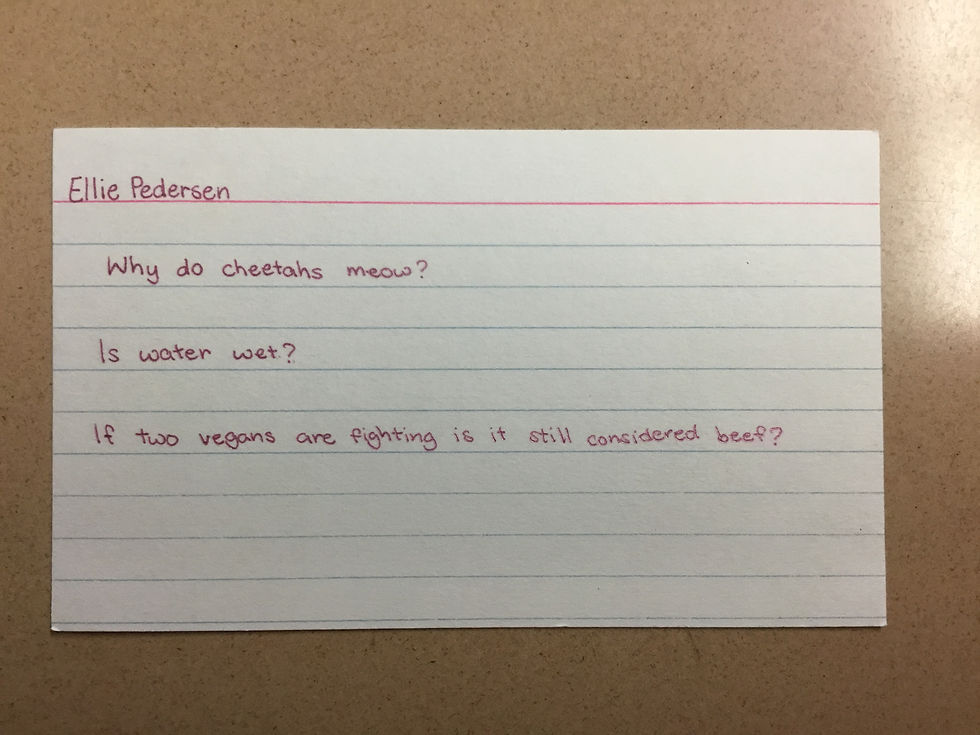 Ellie Pedersen
Why do cheetahs meow?
Is water wet?
If two vegans are fighting is it still considered beef?